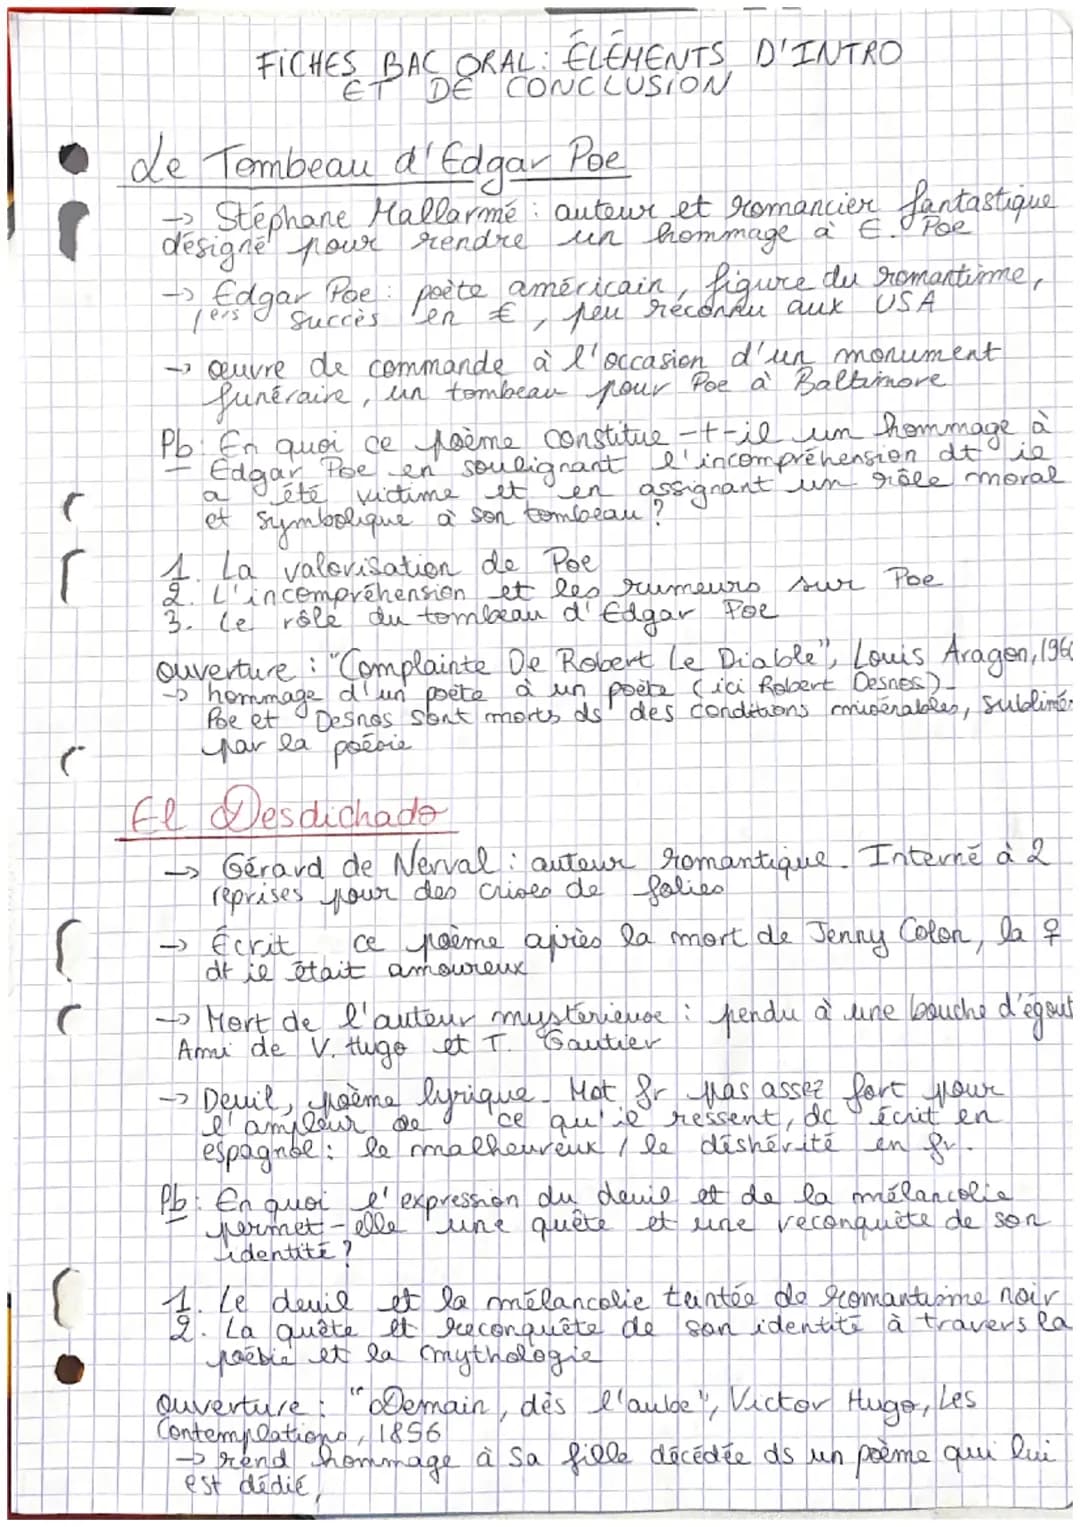 FICHES BAC ORAL: ÉLÉMENTS D'INTRO
ET DE CONCLUSION
Le Tombeau d'Edgar Poe
→ Stéphane Mallarmé : auteur et romancier fantastique
désigné pour rendre un hommage à E. Poe
→ Edgar Poe : poète américain, figure du romantisme,
1ers succès en €, peu reconnu aux USA
→ œuvre de commande à l'occasion d'un monument
funéraire, un tombeau pour Poe à Baltimore
Pb: En quoi ce poème constitue-t-il un hommage à
Edgar Poe en soulignant l'incompréhension dt il
a été victime et en assignant un rôle moral
et symbolique à son tombeau ?
1. La valorisation de Poe
2. L'incompréhension et les rumeurs sur Poe
3. Le rôle du tombeau d'Edgar Poe
Ouverture : "Complainte De Robert Le Diable", Louis Aragon, 196
→ hommage d'un poète à un poète (ici Robert Desnos).
Poe et Desnos sont morts ds des conditions misérables, sublimé
par la poésie
El Desdichado
→ Gérard de Nerval : auteur romantique. Interné à 2
reprises pour des crises de folies
→ Écrit ce poème après la mort de Jenny Colon, la ♀
dt il était amoureux
→ Mort de l'auteur mystérieuse : pendu à une bouche d'égout
Ami de V. Hugo et T. Gautier
→ Deuil, poème lyrique. Mot fr pas assez fort pour
l'ampleur de ce qu'il ressent, dc écrit en
espagnol : le malheureux / le déshérité en fr.
Pb: En quoi l'expression du deuil et de la mélancolie
permet-elle une quête et une reconquête de son
identité ?
1. Le deuil et la mélancolie teintée de romantisme noir
2. La quête et reconquête de son identité à travers la
poésie et la mythologie
Ouverture : "Demain, dès l'aube", Victor Hugo, Les
Contemplations, 1856
→ rend hommage à sa fille décédée ds un poème qui lui
est dédié,